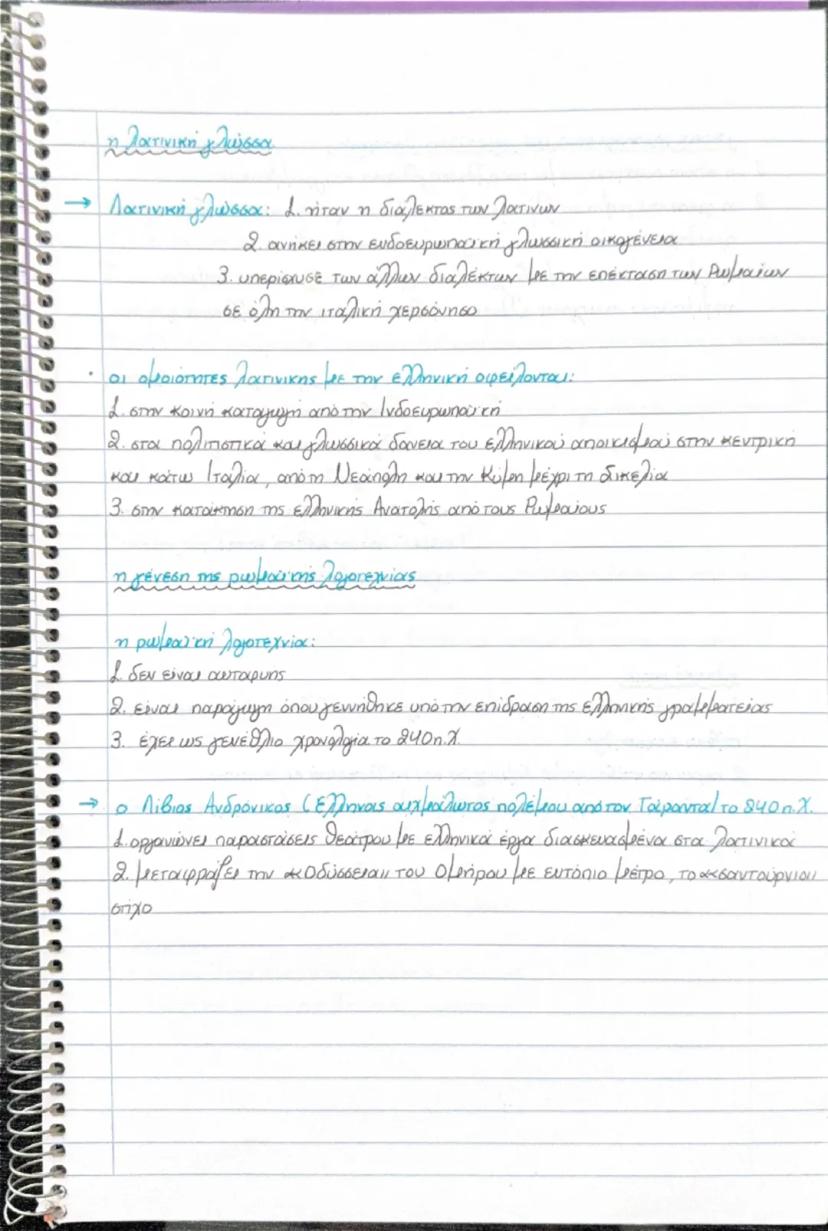 η λατινική γλώσσα
→ Λατινική γλώσσα: 1. ήταν η διάλεκτος των λατίνων
2. ανήκει στην ευδοευρωπαϊκή γλωσσική οικογένεια
3. υπερίσχυσε των άλλων διαλέκτων με την επέκταση των Ρωμαίων
σε όλη την ιταλική χερσόνησο
· οι ομοιότητες λατινικης με την ελληνική οφείλονται:
1. στην κοινή καταγωγή από την Ινδοευρωπαϊκή
2. στα πολιτιστικά και γλωσσικά δάνεια του ελληνικού αποικισμού στην κεντρική
και κάτω Ιταλία, από τη Νεάπολη και την Κύμη μέχρι τη Σικελία
3. στην κατάκτηση της ελληνικής Ανατολής από τους Ρωμαίους
η γένεση της ρωμαϊκής λογοτεχνίας
η ρωμαϊκή λογοτεχνία:
1. δεν είναι αυταρκης
2. είναι παράγωγη όπου γεννήθηκε υπό την επίδραση της ελληνικής γραμματείας
3. έχει ως γενέθλιο χρονολογία το 240 π.Χ.
→ ο Λίβιος Ανδρόνικος (Έλληνας αιχμάλωτος πολέμου από τον Τάραντα) το 240 π.Χ.
1. οργανώνει παραστάσεις θεάτρου με ελληνικά έργα διασκευασμένα στα λατινικά
2. μεταφράζει την «Οδύσσεια» του Ομήρου με ευτόπιο μέτρο, το «σαντούρνιο»
στίχο